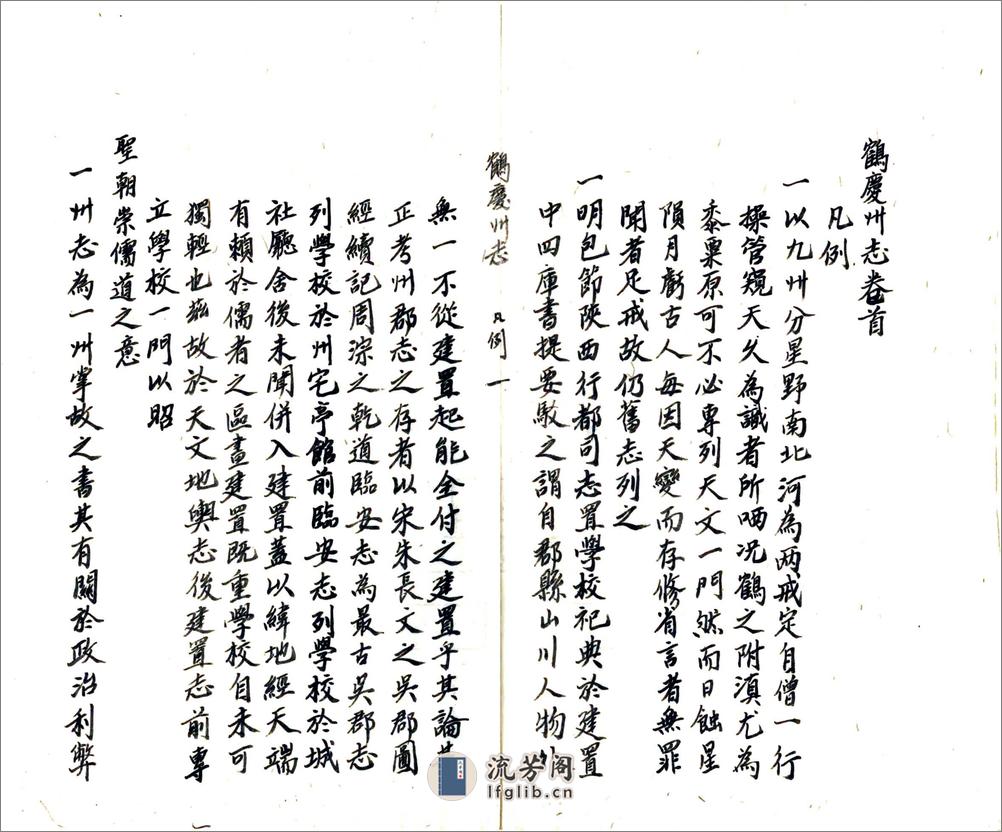 鶴慶州志卷首
凡例
一以九州分星野南北河為两戒定自僧一行
操管窺天久為識者所哂况鶴之附滇尤為
黍粟原可不必專列天文一門然而日蝕星
隕月虧古人每因天變而存修省言者無罪
聞者足戒故仍舊志列之
一明包節陝西行都司志置學校祀典於建置
中四庫書提要駁之謂自郡縣山川人物外
鶴慶州志 凡例 一
無一不從建置起能全付之建置乎其論甚
正考州郡志之存者以宋朱長文之吳郡圖
經續記周淙之乾道臨安志為最古吳郡志
列學校於州宅亭館前臨安志列學校於城
社廳舍後未聞併入建置蓋以緯地經天端
有賴於儒者之區畫建置既重學校自未可
獨輕也茲故於天文地輿志後建置志前專
立學校一門以昭
聖朝崇儒道之意
一州志為一州掌故之書其有關於政治利弊
流芳阁
lfglib.cn